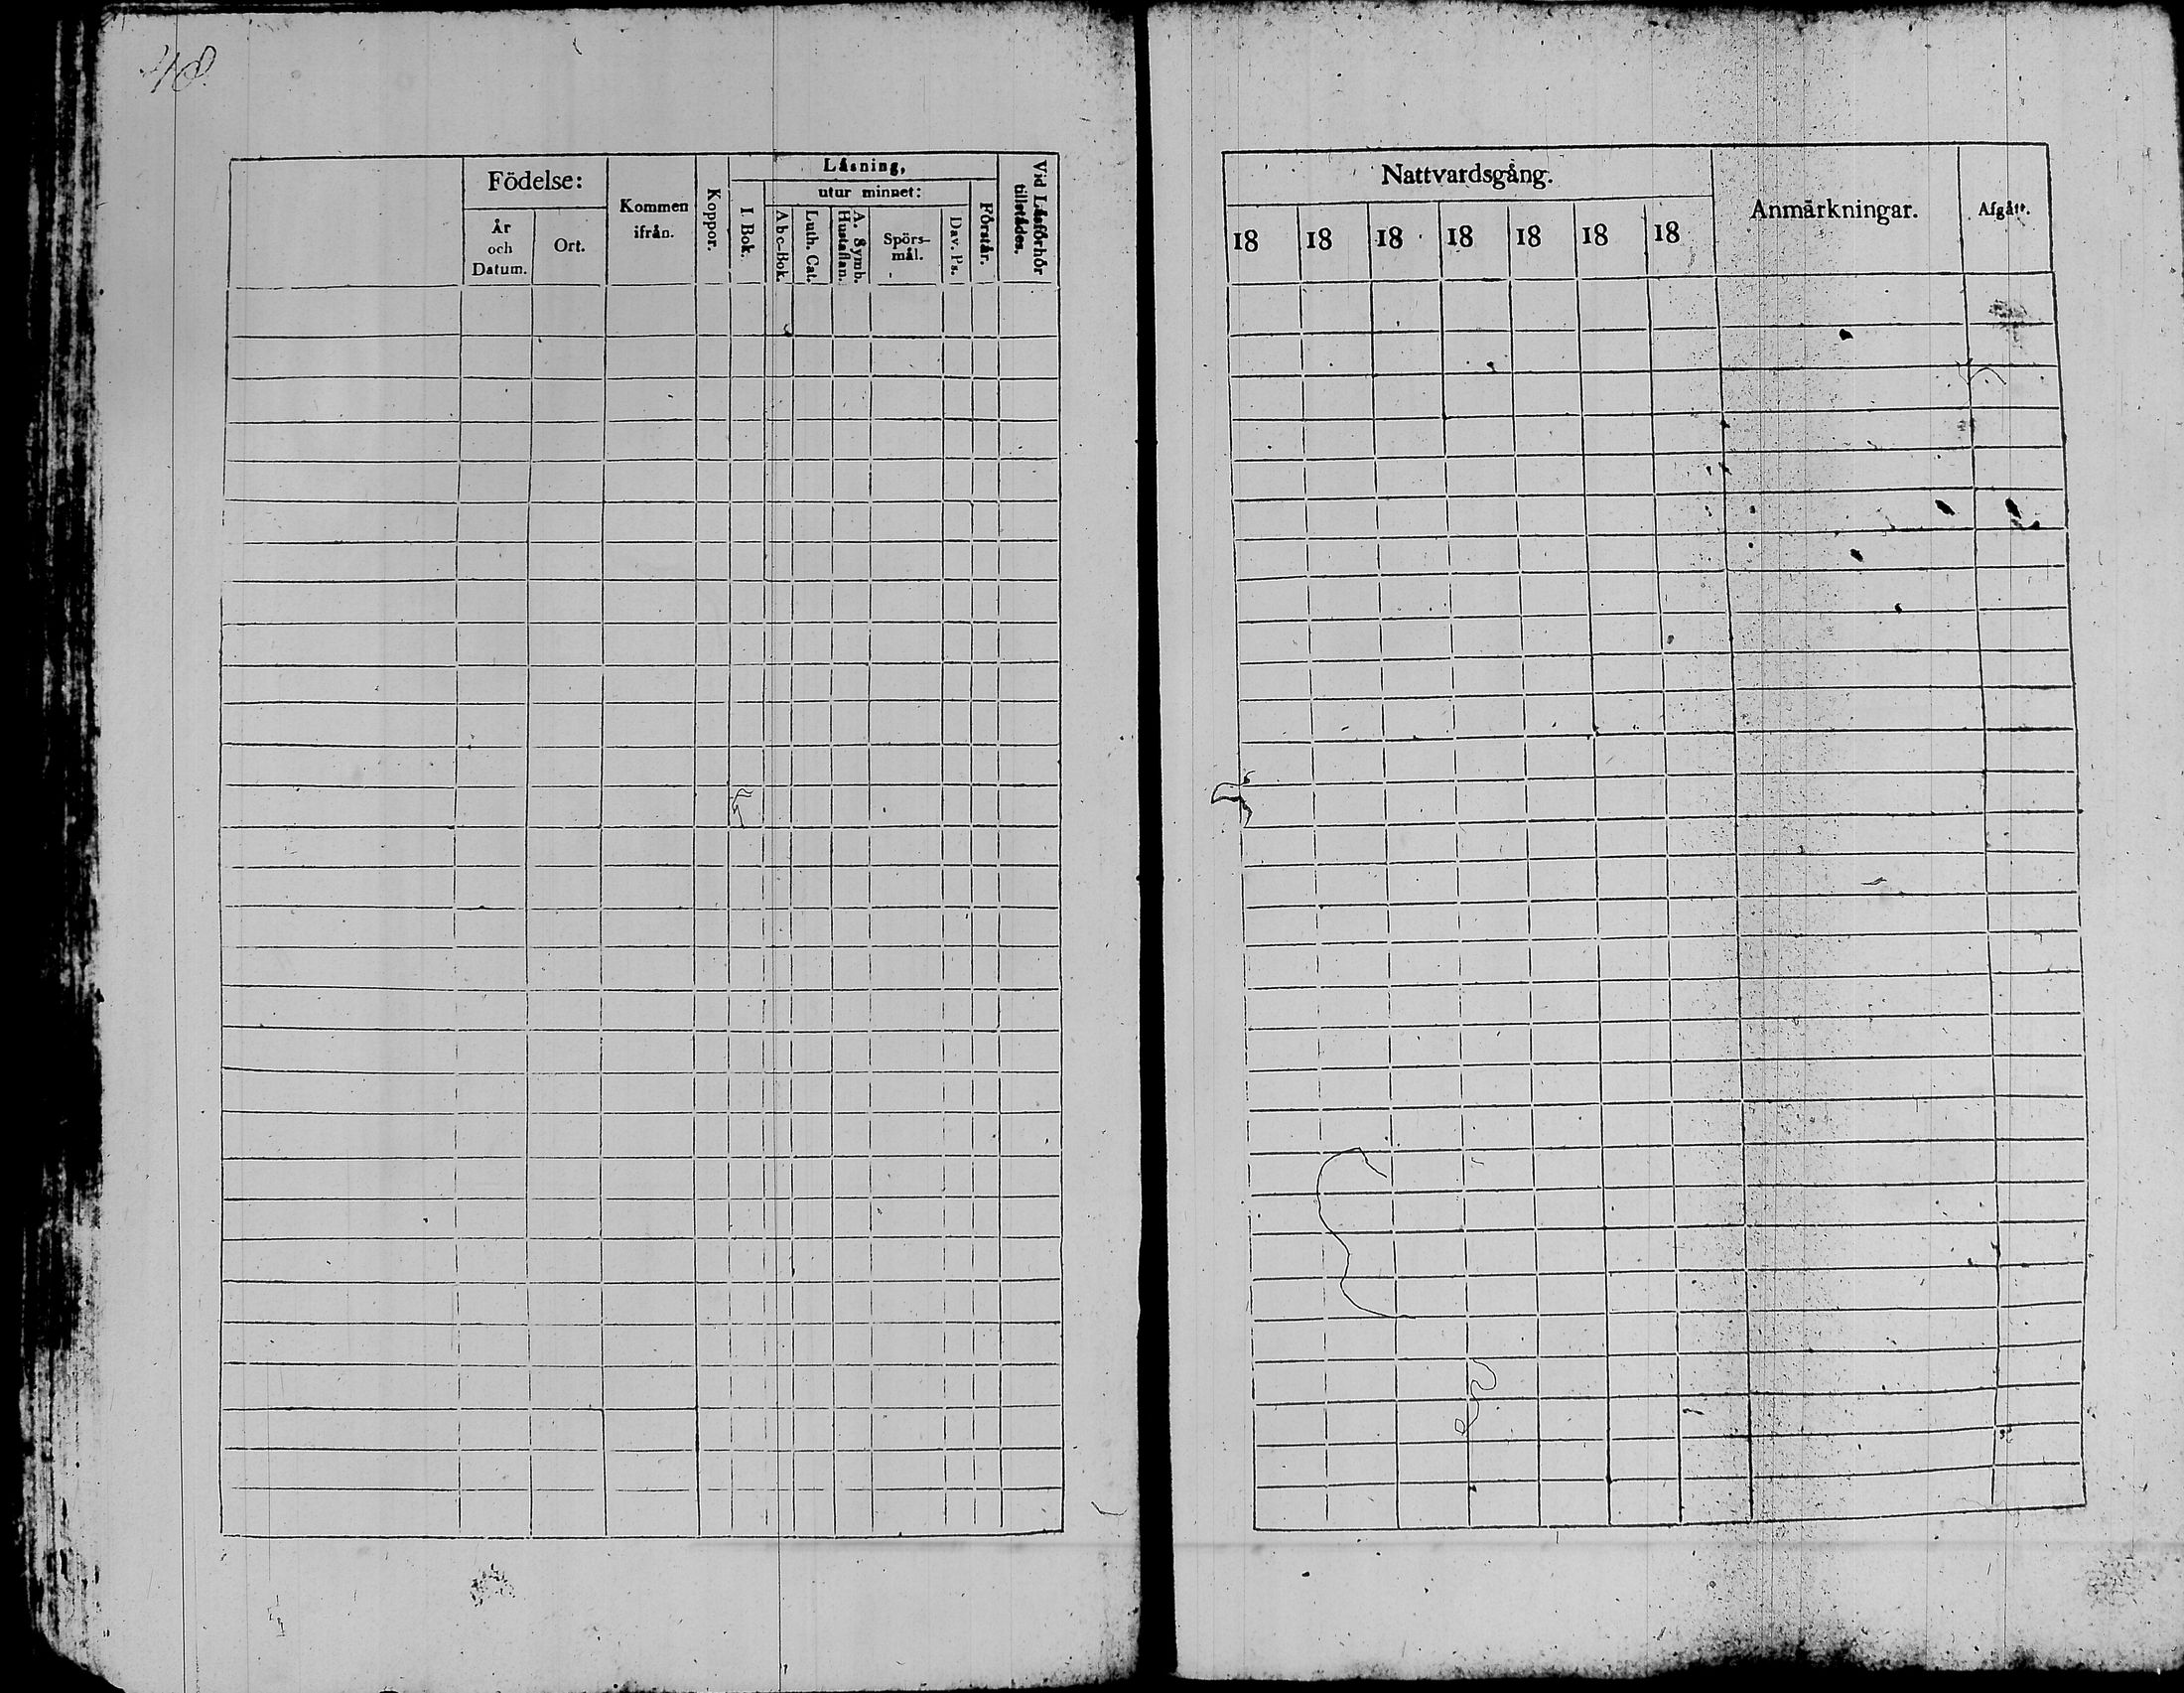 48.
Födelse:
År
och
Datum.
Ort.
Kommen
ifrån.
Koppor.
Låsning,
I. Bok.
utur minnet:
Abc-Bok.
Luth. Cat.
A. Symb.
Hustaflan.
Spörs-
mål.
Dav. Ps.
Förstår.
Vid Låsförhör
tillstådes.
Nattvardsgång.
18 18 18 18 18 18 18
Anmärkningar.
Afgått.